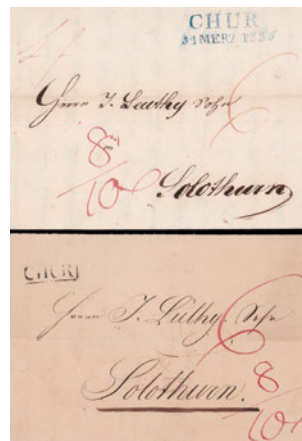 CHUR
31 MERZ 1835
6
Herrn J. Luthy Sohn
8
10
Solothurn
CHUR
Herrn J. Lüthy. Sohn
6
Solothurn.
8
10